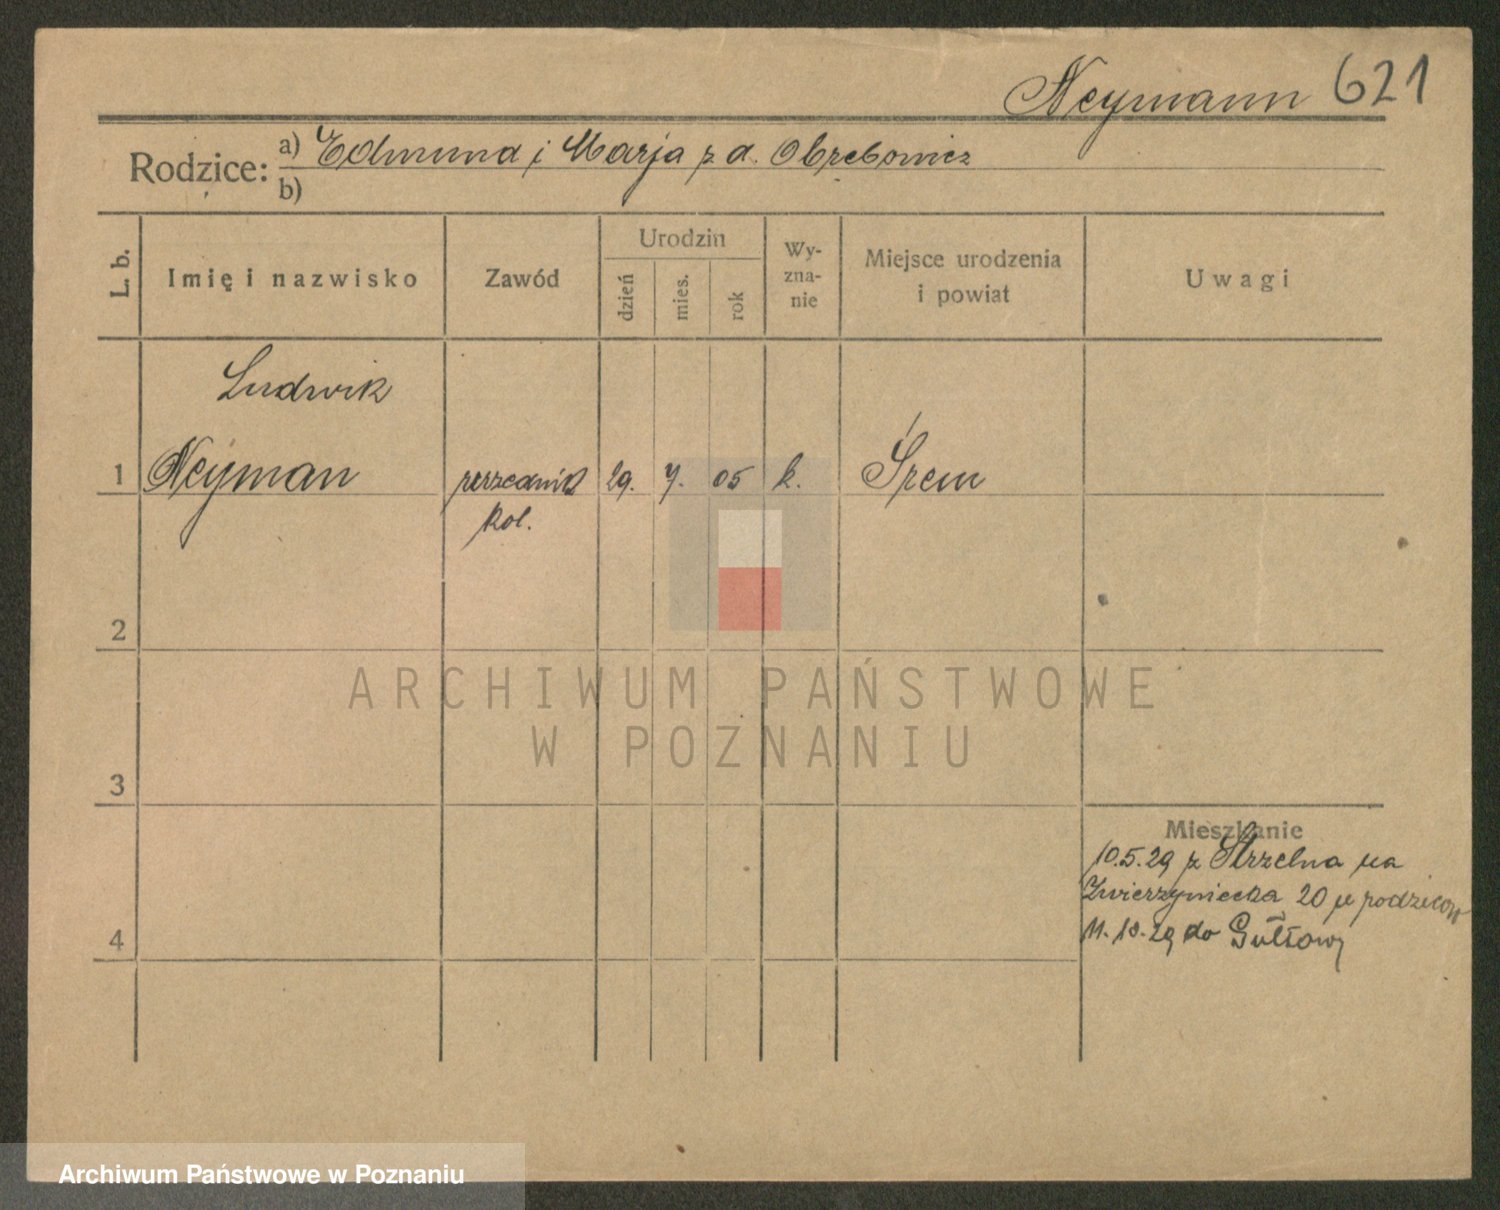 Neymann 621
Rodzice: a) Edmund i Marja z d. Obrębowicz
b)
L. b. Imię i nazwisko Zawód Urodzin dzień mies. rok Wy-zna-nie Miejsce urodzenia i powiat Uwagi
Ludwik
1 Neyman urzędnik 29. 7. 05 k. Śrem
kol.
2
ARCHIWUM PAŃSTWOWE
W POZNANIU
3
Mieszkanie
10.5.29 z Strzelna na
Zwierzyniecka 20 u rodziców
11.10.29 do Gułtowy
4
Archiwum Państwowe w Poznaniu